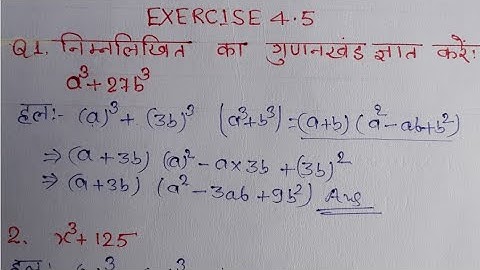 EXERCISE 4.5
Q1. निम्नलिखित का गुणनखंड ज्ञात करें:
a³+27b³
हल:- (a)³ + (3b)³ (a³+b³) = (a+b) (a²-ab+b²)
⇒ (a + 3b) (a)² - a×3b + (3b)²
⇒ (a+3b) (a² - 3ab + 9b²) Ans
2. x³+125
हल:-